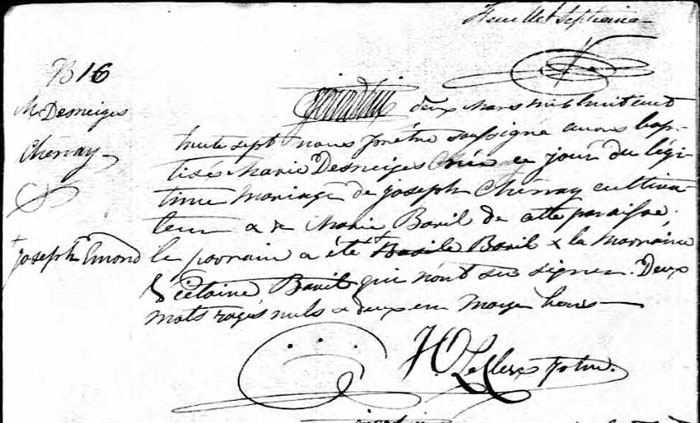 Feuillet septième
B16
M. Desneiges
Chenay
deux mars mil huit cent
trente sept nous prêtre soussigné avons bap-
tisé Marie Desneiges née ce jour du légi-
time mariage de Joseph Chenay cultiva-
teur & de Marie Baril de cette paroisse.
+ Joseph Emond
le parrain a été + Basile Baril & la marraine
Baril qui n'ont su signer. Deux
mots rayés nuls & deux en marge bons
Leclerc Ptre.